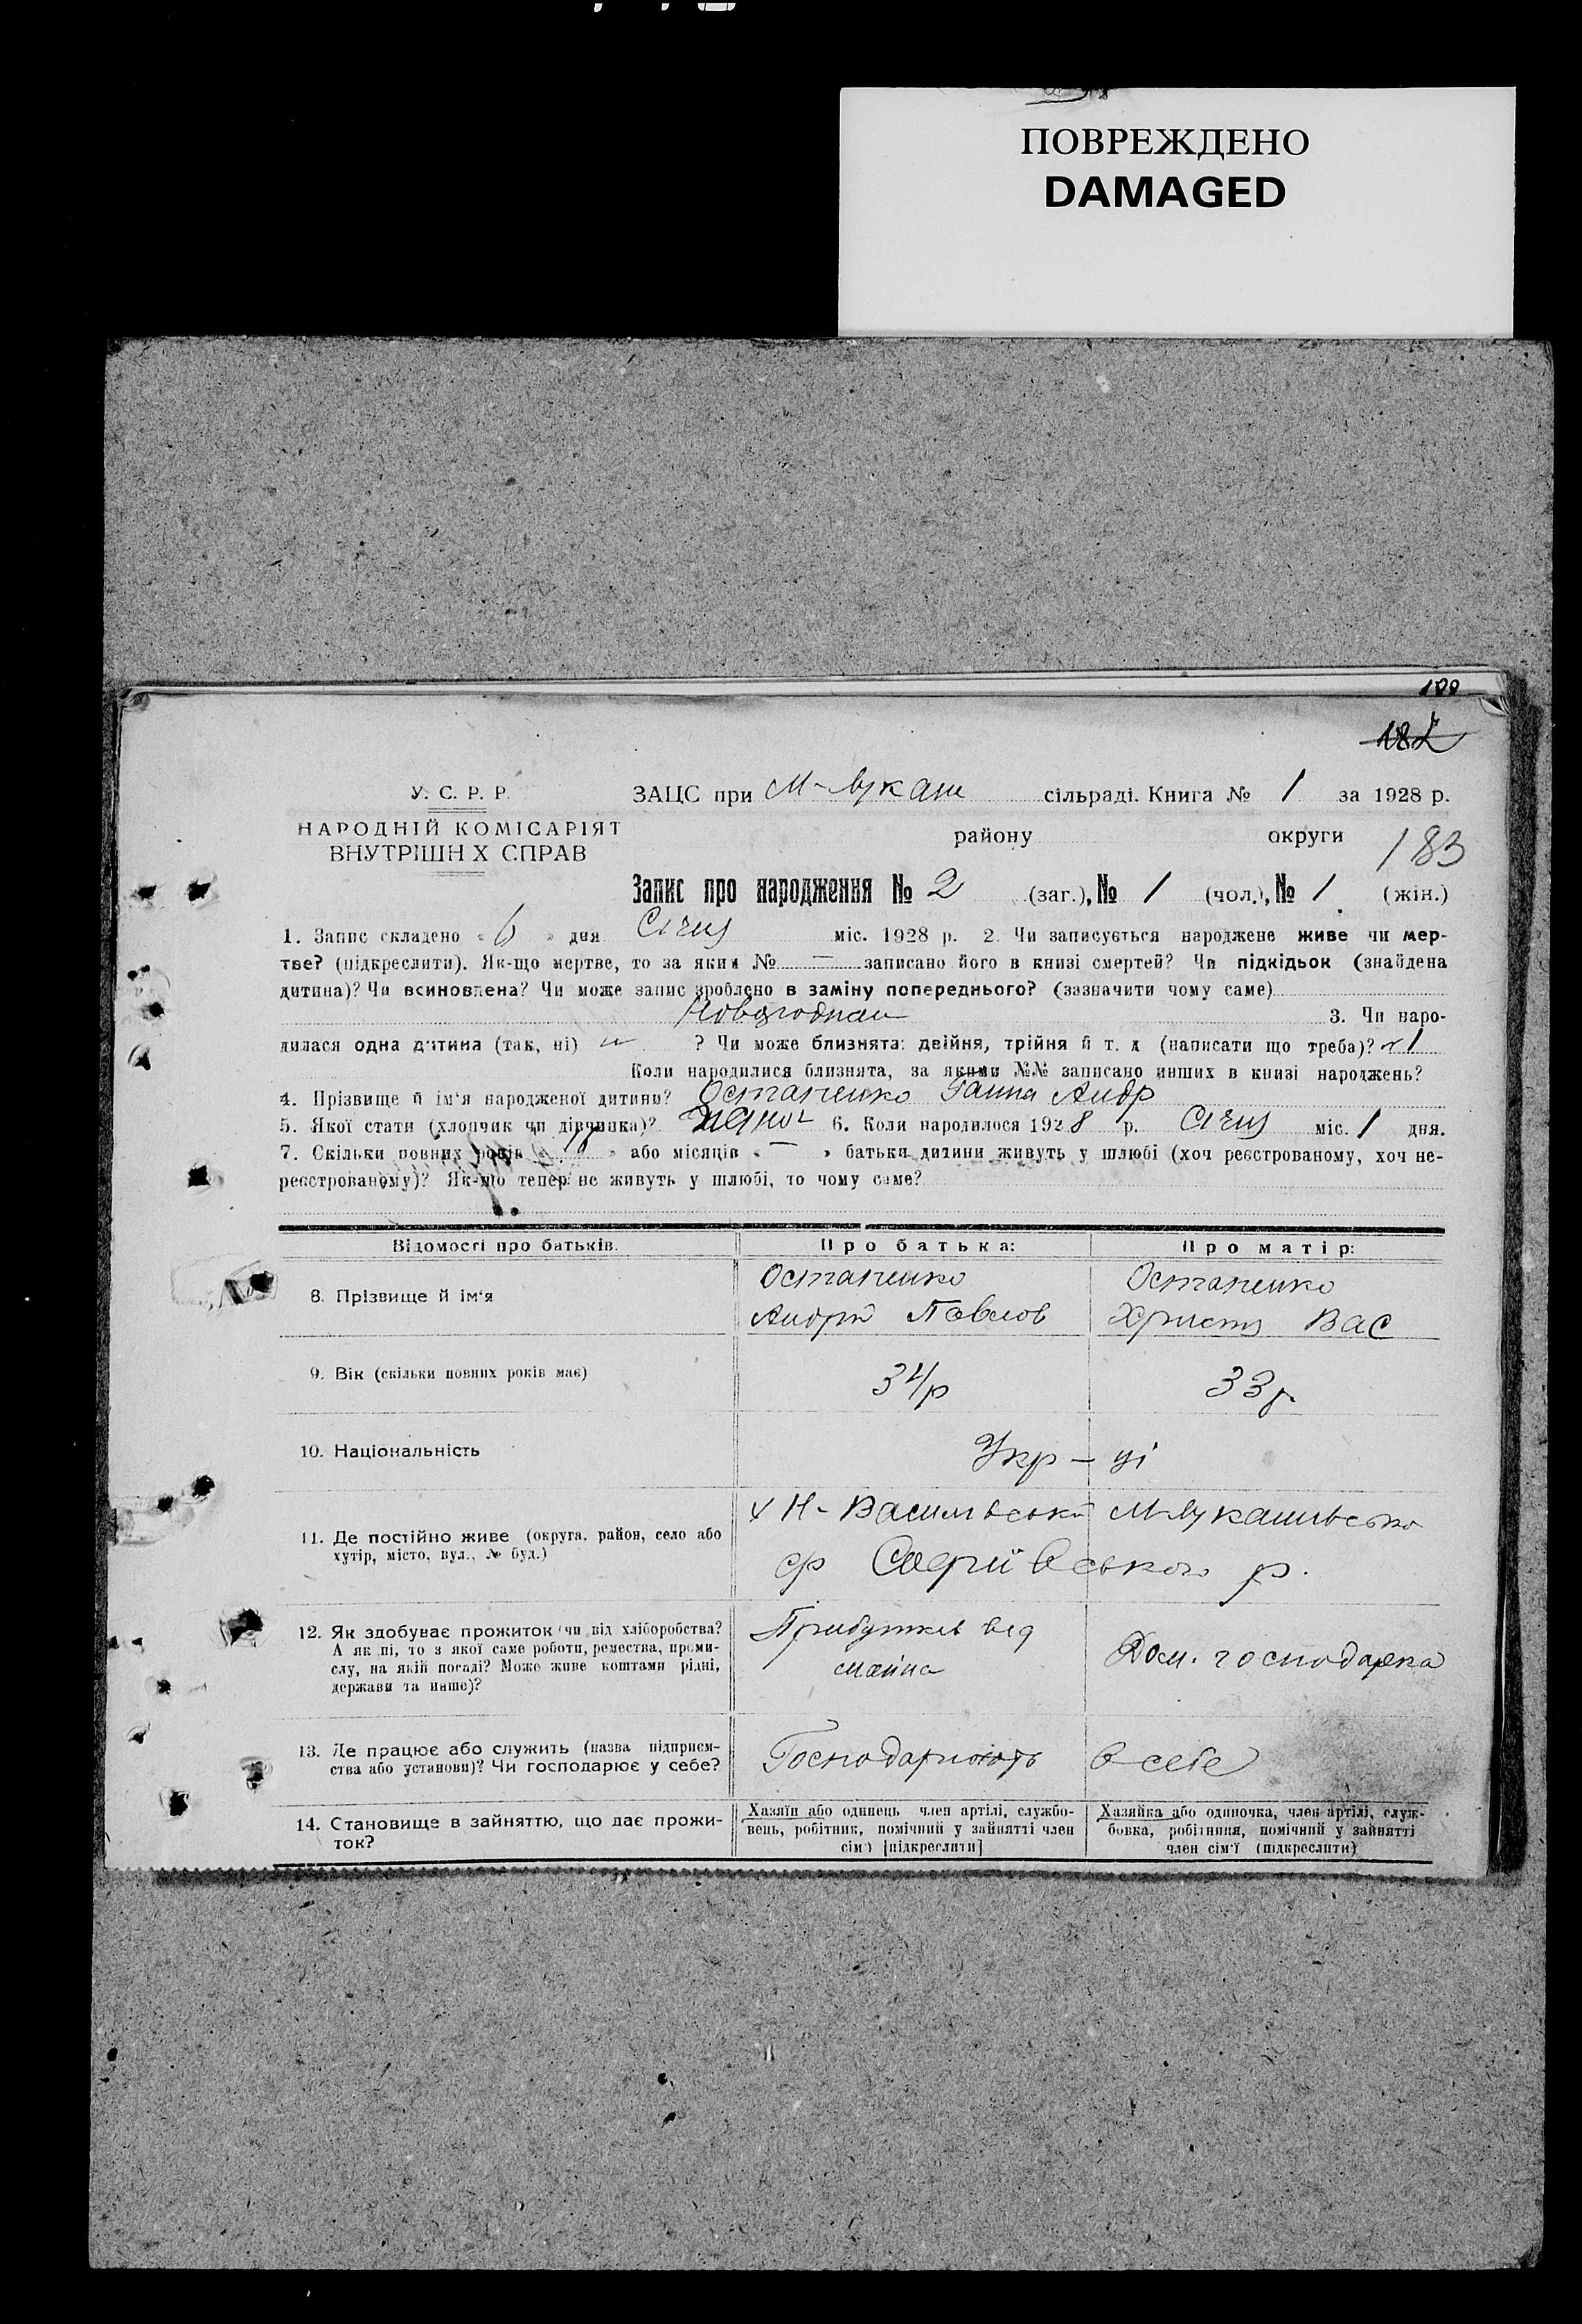 ПОВРЕЖДЕНО
DAMAGED
100
182
У. С. Р. Р.
НАРОДНІЙ КОМІСАРІЯТ
ВНУТРІШН Х СПРАВ
ЗАЦС при М-Лукаш сільраді. Книга № 1 за 1928 р.
району округи
183
Запис про народження № 2 (заг.), № 1 (чол.), № 1 (жін.)
1. Запис складено « 6 » дня Січня міс. 1928 р. 2. Чи записується народжене живе чи мер-
тве? (підкреслити). Як-що мертве, то за яким № — записано його в книзі смертей? Чи підкідьок (знайдена
дитина)? Чи всиновлена? Чи може запис зроблено в заміну попереднього? (зазначити чому саме)
3. Чи наро-
дилася одна дитина (так, ні) ? Чи може близнята: двійня, трійня й т. д (написати що треба)? 1
Коли народилися близнята, за якими №№ записано инших в книзі народжень?
4. Прізвище й ім'я народженої дитини? Остапенко Ганна Андр
5. Якої стати (хлопчик чи дівчинка)? 6. Коли народилося 1928 р. Січня міс. 1 дня.
7. Скільки повних років « » або місяців « — » батьки дитини живуть у шлюбі (хоч реєстрованому, хоч не-
реєстрованому)? Як-що тепер не живуть у шлюбі, то чому саме?
Відомості про батьків. Про батька: Про матір:
8. Прізвище й ім'я
Остапенко Остапенко
Андрій Павлов Христя Вас
9. Вік (скільки повних років має) 34р 33р
10. Національність Укр — ці
11. Де постійно живе (округа, район, село або
хутір, місто, вул., № буд.)
х Н-Васильвськ М-Лукашівсько
ср Софиївського р.
12. Як здобуває прожиток (чи від хліборобства?
А як ні, то з якої саме роботи, ремества, проми-
слу, на якій посаді? Може живе коштами рідні,
держави та инше)?
Прибутків від
майна
Дом. господарка
13. Де працює або служить (назва підприєм-
ства або установи)? Чи господарює у себе?
Господарюють в себе
14. Становище в зайняттю, що дає прожи-
ток?
Хазяїн або одинець член артілі, службо-
вець, робітник, помічний у зайнятті член
сім'ї [підкреслити]
Хазяйка або одиночка, член артілі, служ-
бовка, робітниця, помічний у зайнятті
член сім'ї (підкреслити)